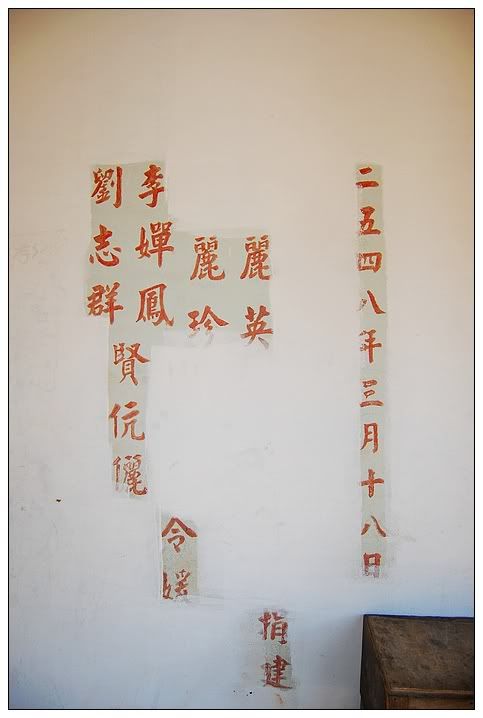 二五四八年三月十八日
麗英
麗珍
令媛
李嬋鳳
劉志群
賢伉儷
捐建